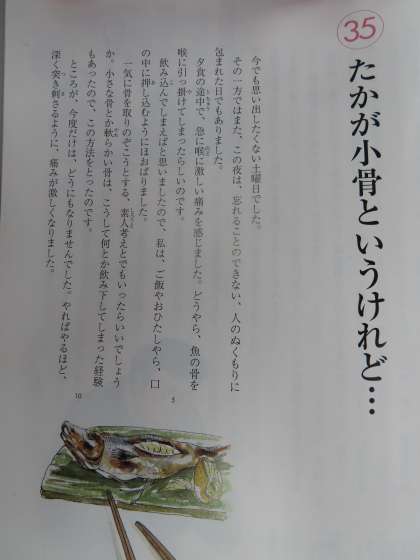 35
たかが小骨というけれど…
今でも思い出したくない土曜日でした。
その一方ではまた、この夜は、忘れることのできない、人のぬくもりに
包まれた日でもありました。
夕食の途中で、急に喉に激しい痛みを感じました。どうやら、魚の骨を
喉に引っ掛けてしまったらしいのです。
飲み込んでしまえばと思いましたので、私は、ご飯やおひたしやら、口
の中に押し込むようにほおばりました。
一気に骨を取りのぞこうとする、素人考えとでもいったらいいでしょう
か。小さな骨とか軟らかい骨は、こうして何とか飲み下してしまった経験
もあったので、この方法をとったのです。
ところが、今度だけは、どうにもなりませんでした。やればやるほど、
深く突き刺さるように、痛みが激しくなりました。
5
10